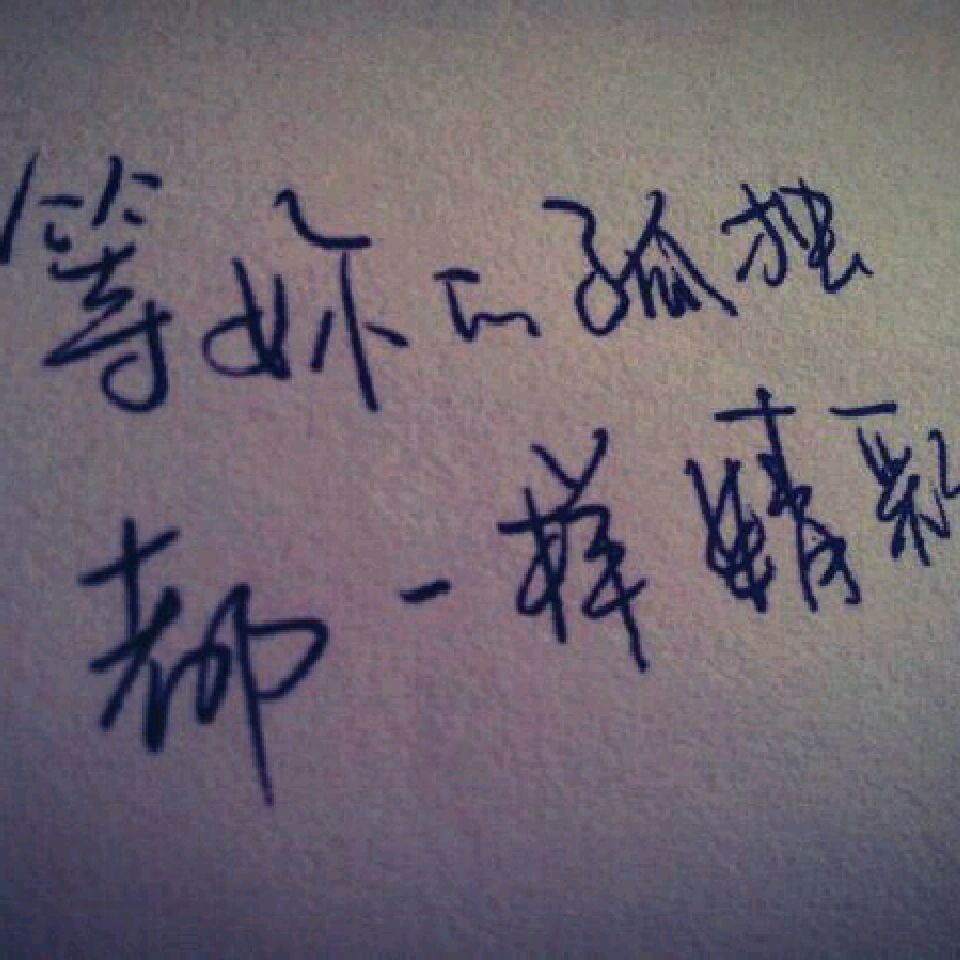 等妳的孤独
都一样精彩